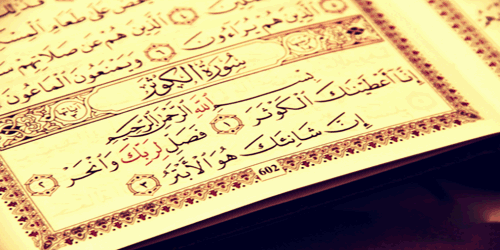 عَلَىٰ طَعَامِ
الَّذِينَ هُمْ عَن صَلَاتِهِمْ
الَّذِينَ هُمْ يُرَاءُونَ ٦ وَيَمْنَعُونَ الْمَاعُونَ
سُورَةُ الْكَوْثَرِ
بِسْمِ اللَّهِ الرَّحْمَٰنِ الرَّحِيمِ
إِنَّا أَعْطَيْنَاكَ الْكَوْثَرَ ١ فَصَلِّ لِرَبِّكَ وَانْحَرْ ٢
إِنَّ شَانِئَكَ هُوَ الْأَبْتَرُ ٣
602